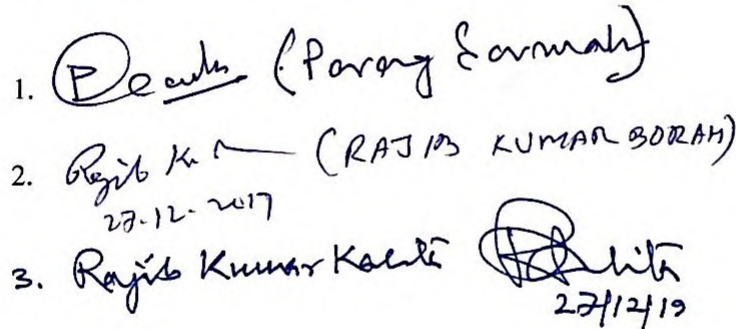 1. (Parag Sarmah)
2. Rajib K. (RAJIB KUMAR BORAH)
27-12-2017
3. Rajib Kumar Kalita
27/12/19